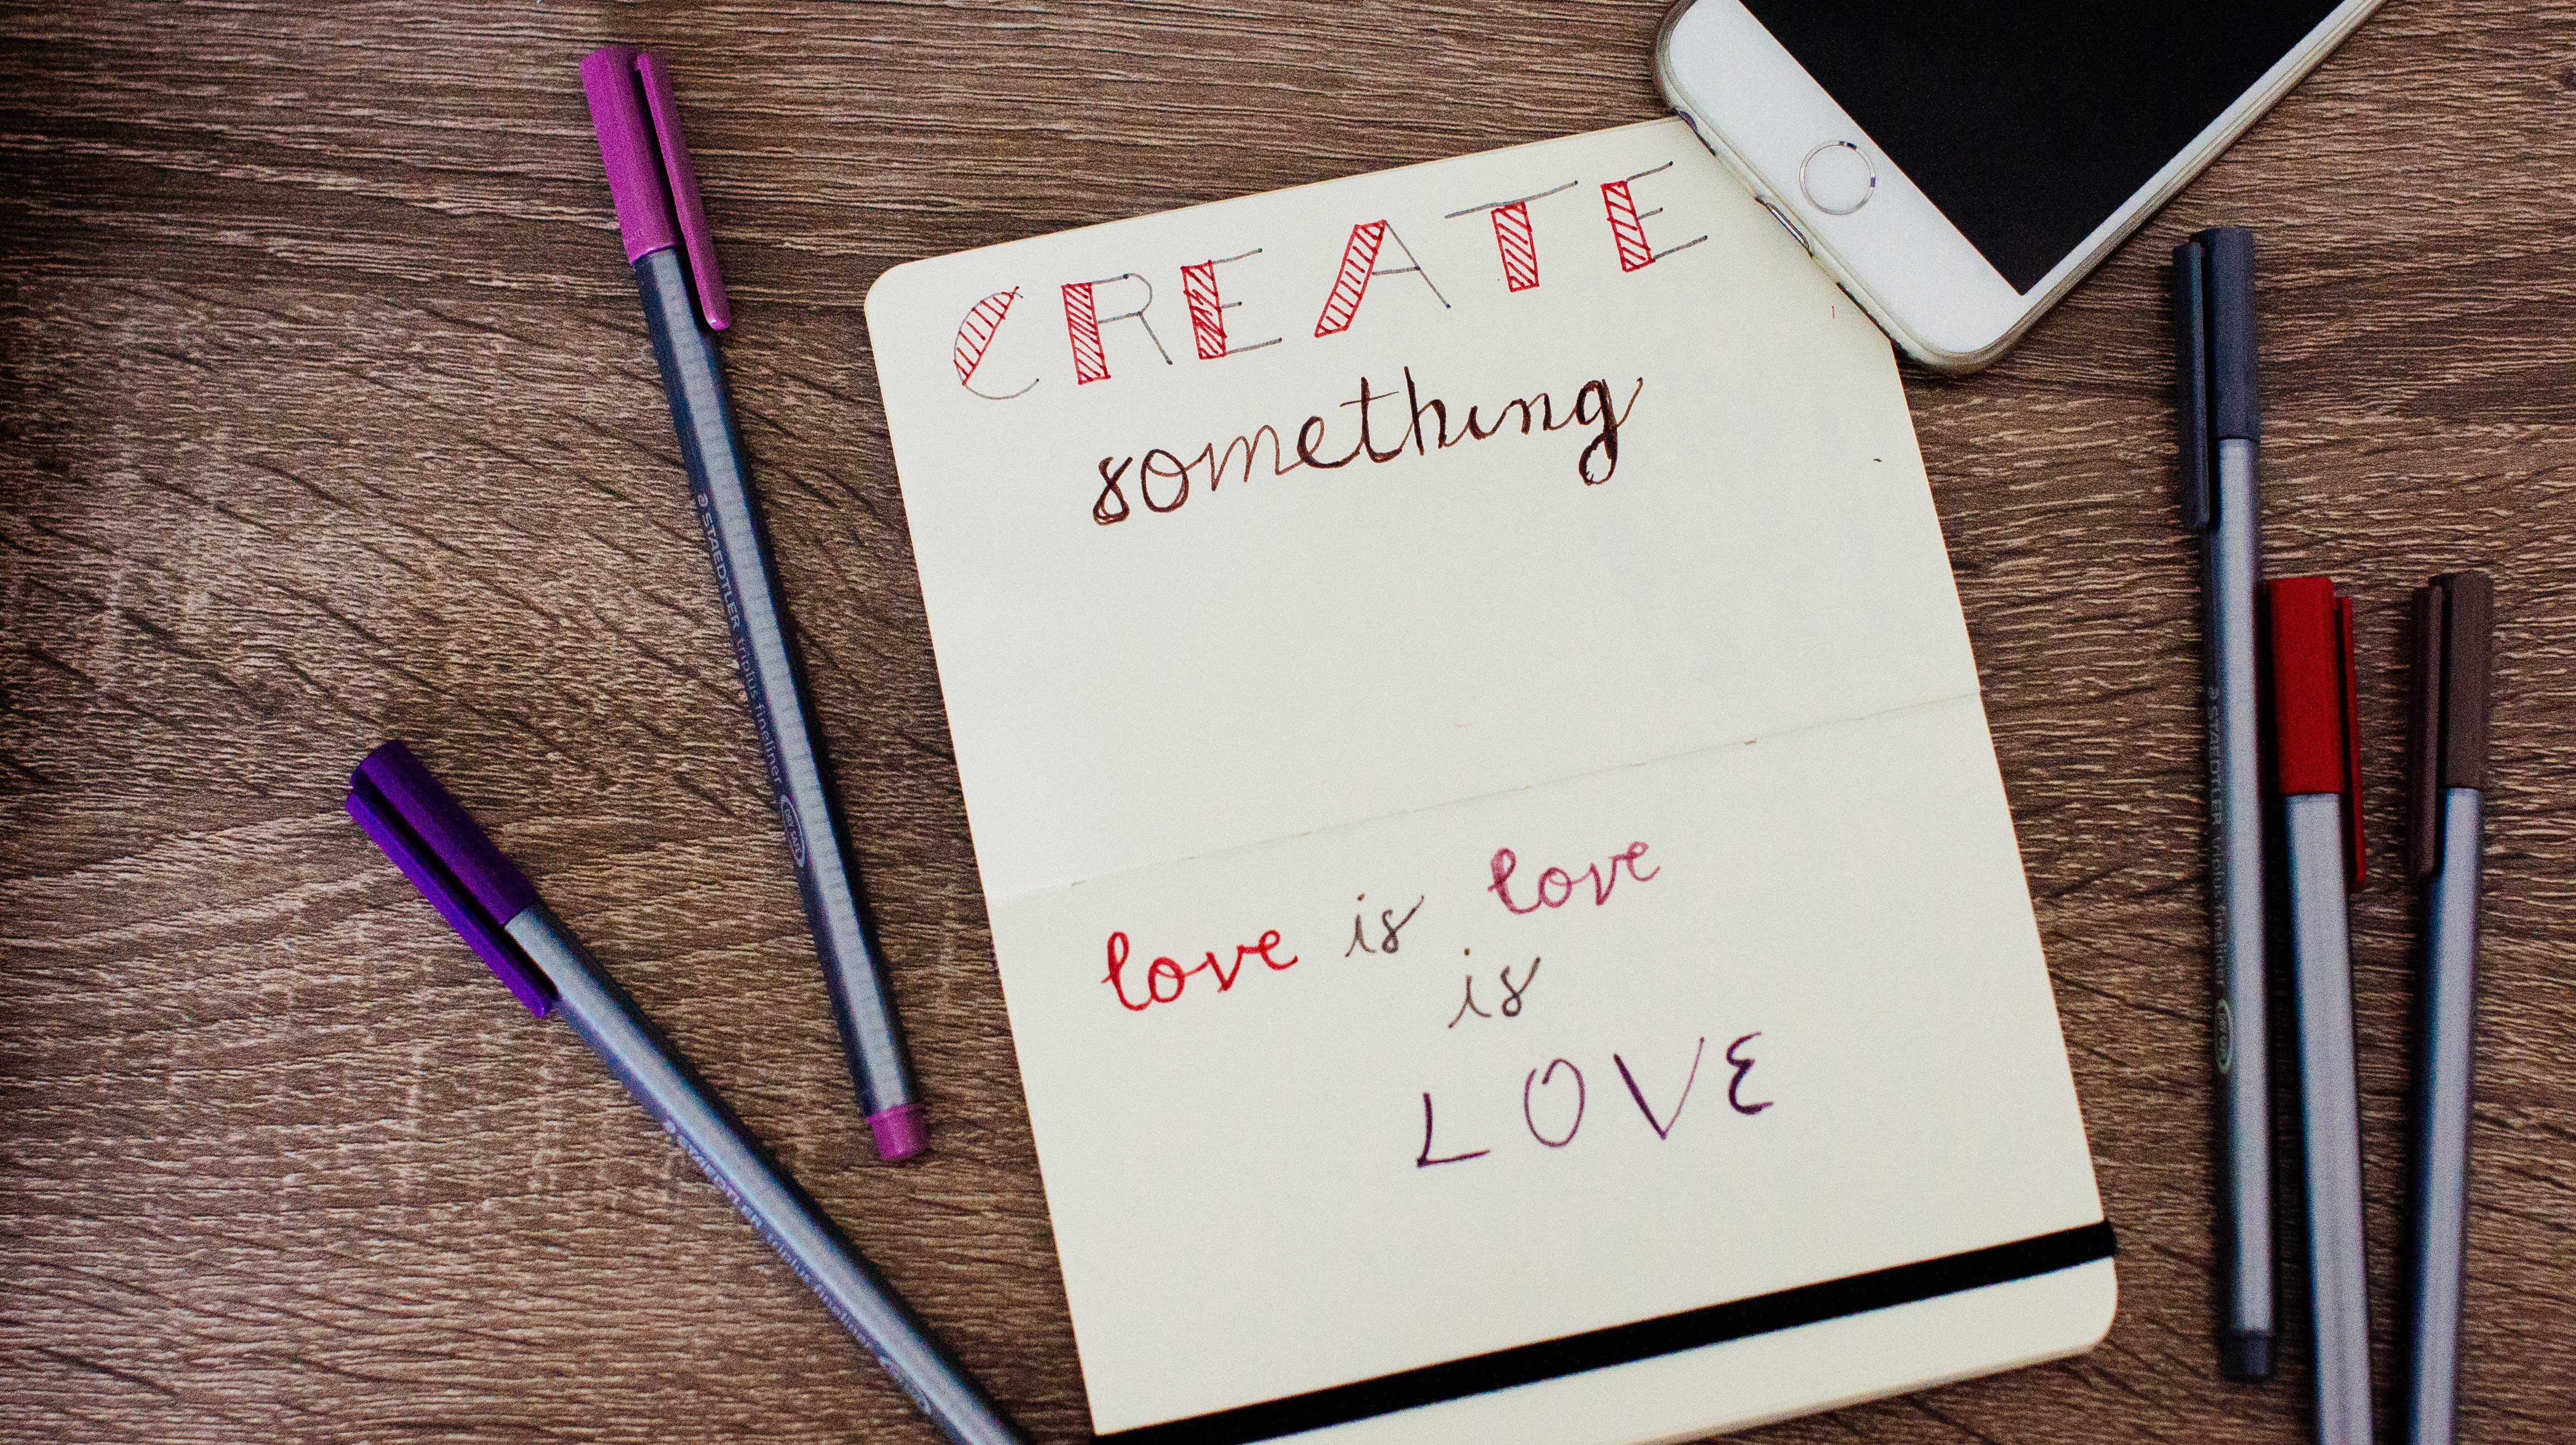 CREATE
something
love is love
is
LOVE
STAEDTLER triplus fineliner
DRY SAFE
STAEDTLER triplus fineliner
STAEDTLER triplus fineliner